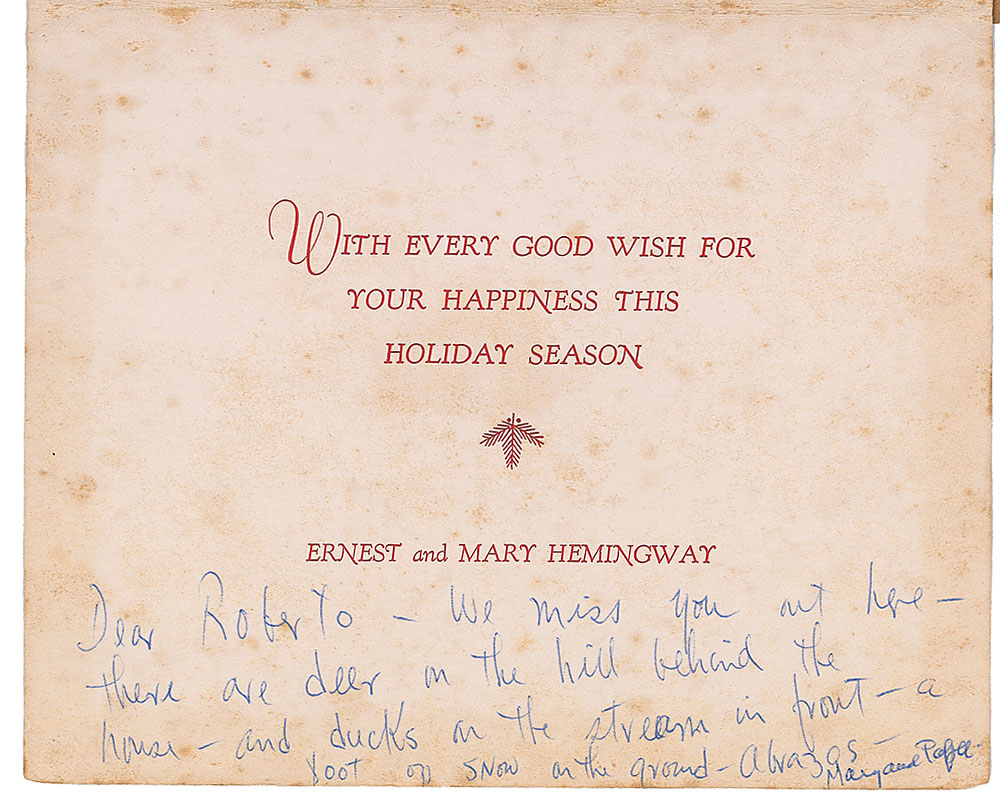 WITH EVERY GOOD WISH FOR
YOUR HAPPINESS THIS
HOLIDAY SEASON
ERNEST and MARY HEMINGWAY
Dear Roberto – We miss you out here –
there are deer on the hill behind the
house – and ducks on the stream in front – a
foot of snow on the ground – Abrazos –
Mary and Papa.